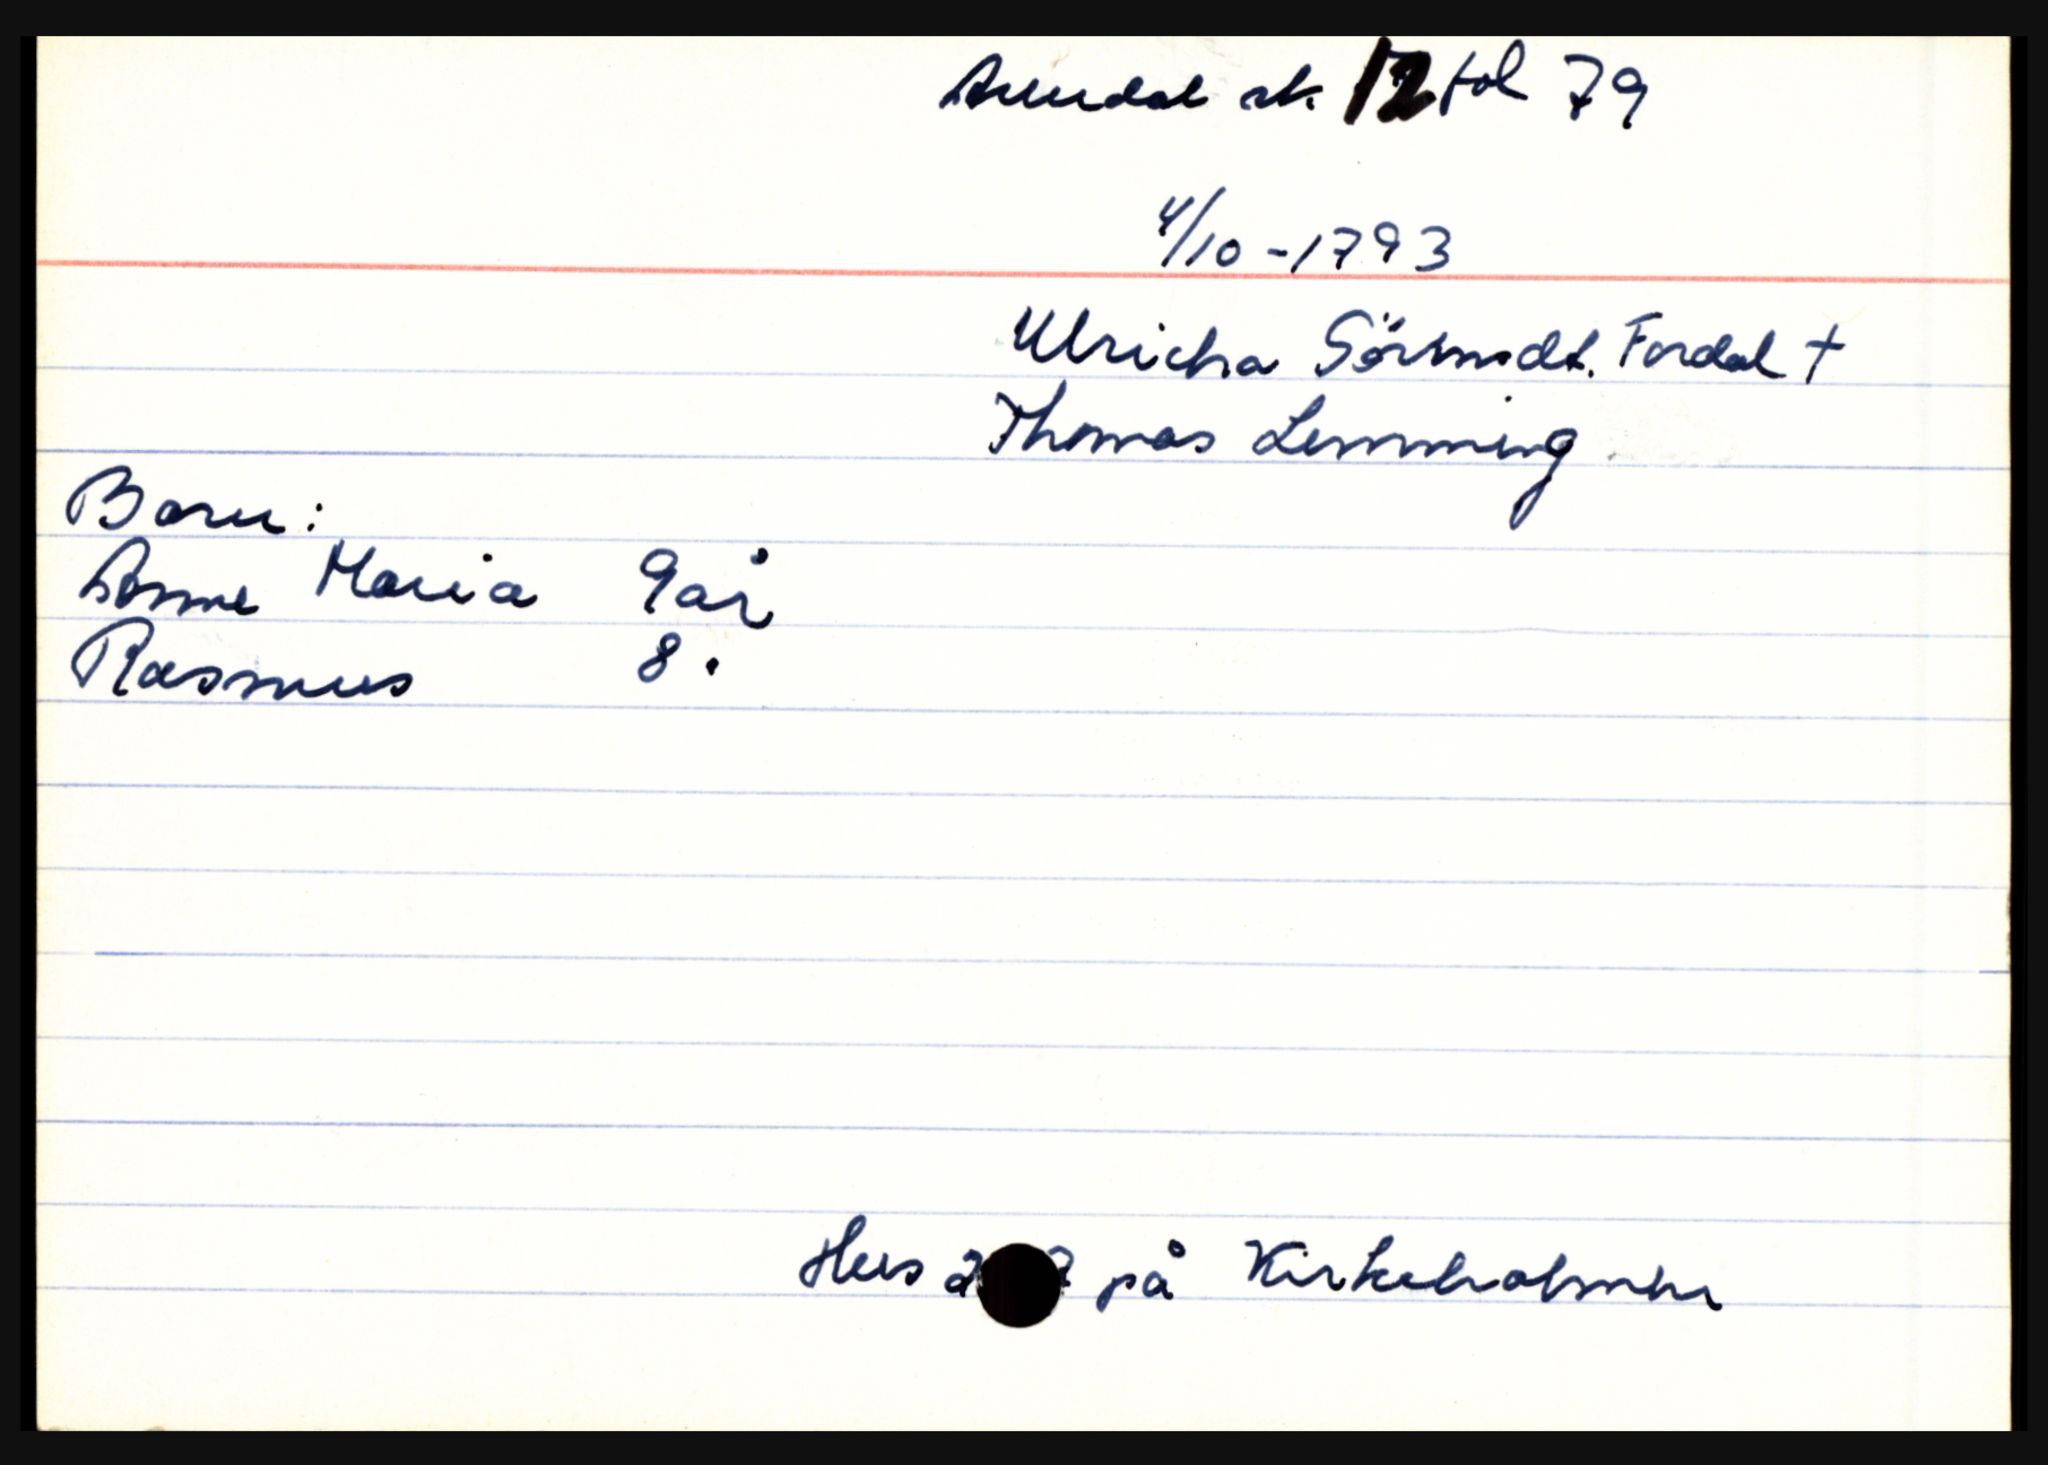 Arendal sk 12 fol 79
4/10 - 1793
Ulricha Sörensdt. Fordal +
Thomas Lemming
Barn:
Anne Maria 9 år
Rasmus 8 "
Hus på Kirkeholmen